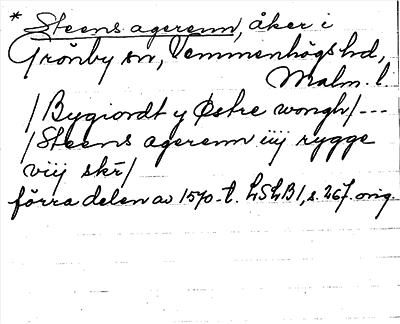 * Steens agerenn, åker i
Grönby sn, Vemmenhögs hd,
Malm. l.
/Bygiordt y Østre wongh/---
/Steens agerenn iiij rygge
viij skr̄/
förra delen av 1570-t. LSLB1, s. 267. orig.